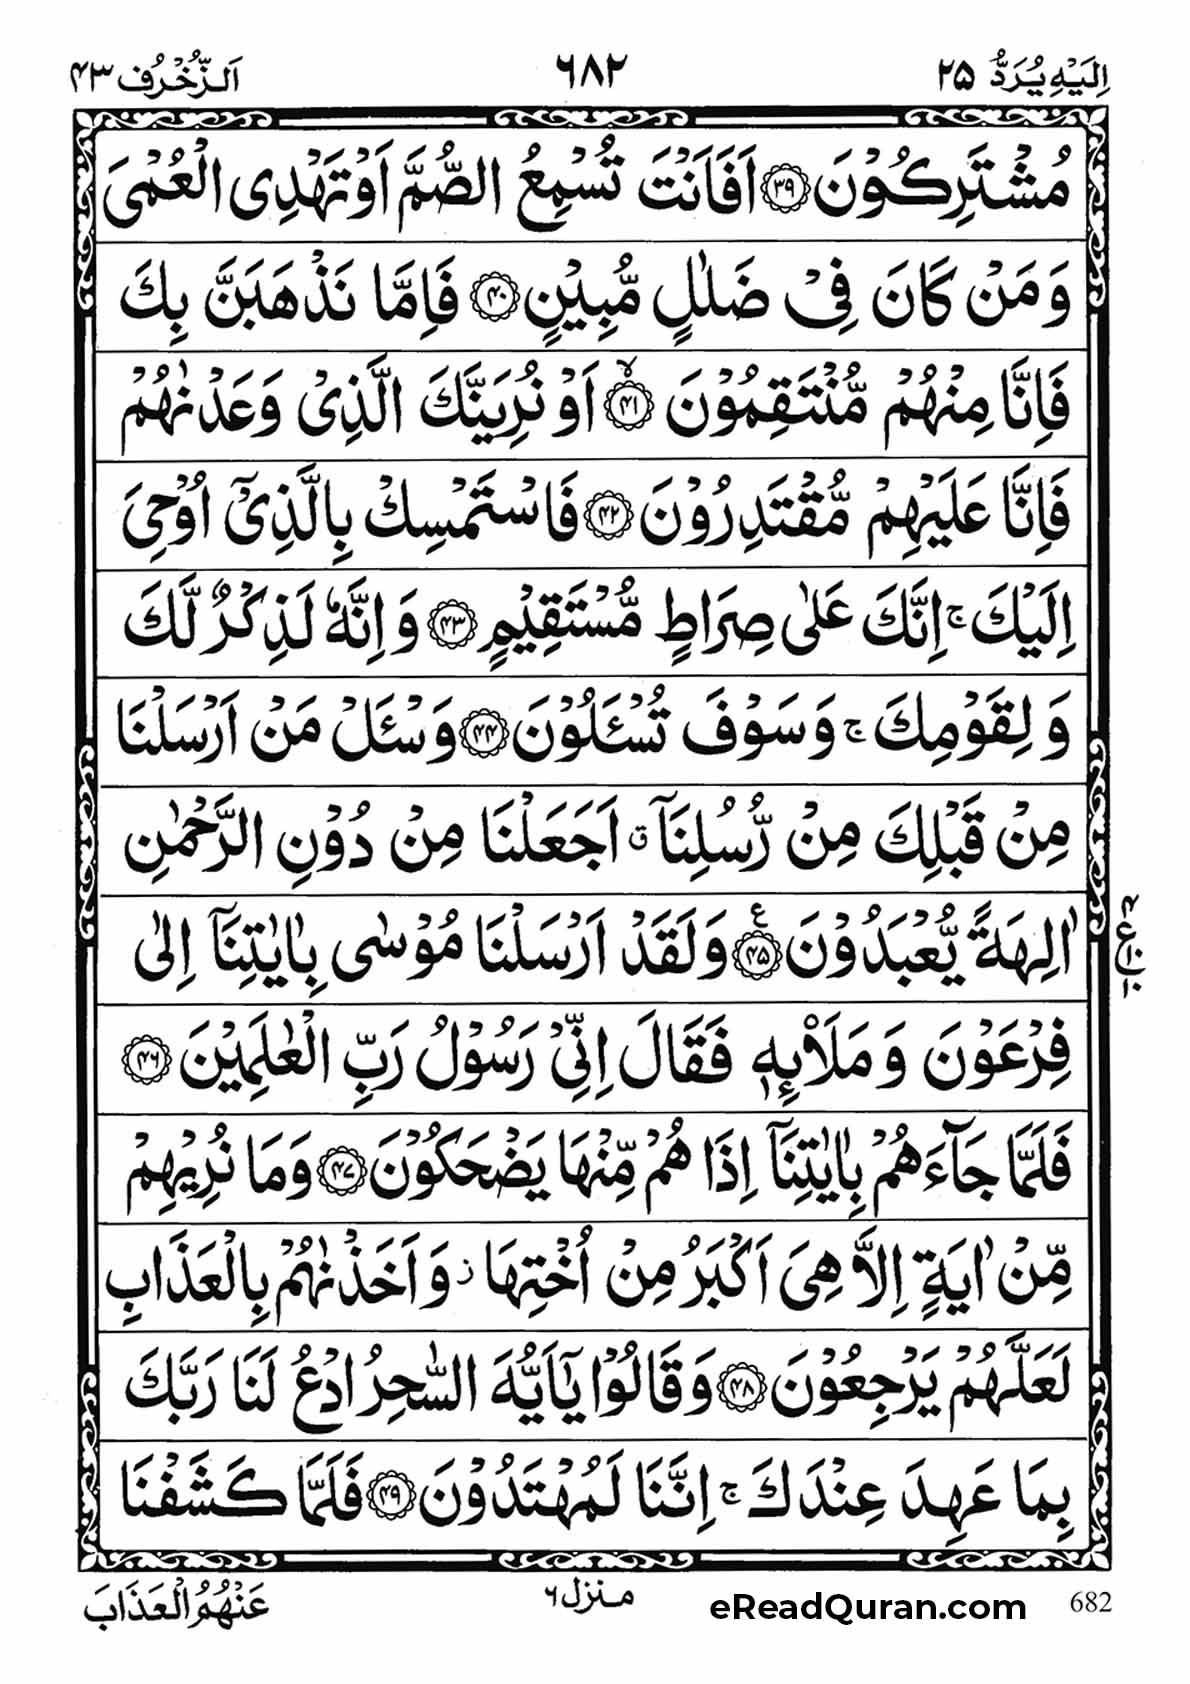 اِلَيْهِ يُرَدُّ ٢٥ ٦٨٢ اَلزُّخْرُف ٤٣
مُشْتَرِكُوْنَ ﴿٣٩﴾ اَفَاَنْتَ تُسْمِعُ الصُّمَّ اَوْ تَهْدِى الْعُمْىَ
وَ مَنْ كَانَ فِىْ ضَلٰلٍ مُّبِيْنٍ ﴿٤٠﴾ فَاِمَّا نَذْهَبَنَّ بِكَ
فَاِنَّا مِنْهُمْ مُّنْتَقِمُوْنَ ﴿٤١﴾ۙ اَوْ نُرِيَنَّكَ الَّذِىْ وَعَدْنٰهُمْ
فَاِنَّا عَلَيْهِمْ مُّقْتَدِرُوْنَ ﴿٤٢﴾ فَاسْتَمْسِكْ بِالَّذِىْۤ اُوْحِىَ
اِلَيْكَ ۚ اِنَّكَ عَلٰى صِرَاطٍ مُّسْتَقِيْمٍ ﴿٤٣﴾ وَ اِنَّهٗ لَذِكْرٌ لَّكَ
وَ لِقَوْمِكَ ۚ وَ سَوْفَ تُسْـَٔلُوْنَ ﴿٤٤﴾ وَسْـَٔلْ مَنْ اَرْسَلْنَا
مِنْ قَبْلِكَ مِنْ رُّسُلِنَاۤ ق اَجَعَلْنَا مِنْ دُوْنِ الرَّحْمٰنِ
اٰلِهَةً يُّعْبَدُوْنَ ﴿٤٥﴾ ع وَلَقَدْ اَرْسَلْنَا مُوْسٰى بِاٰيٰتِنَاۤ اِلٰى
فِرْعَوْنَ وَ مَلَا۟ئِهٖ فَقَالَ اِنِّىْ رَسُوْلُ رَبِّ الْعٰلَمِيْنَ ﴿٤٦﴾
فَلَمَّا جَآءَهُمْ بِاٰيٰتِنَاۤ اِذَا هُمْ مِّنْهَا يَضْحَكُوْنَ ﴿٤٧﴾ وَمَا نُرِيْهِمْ
مِّنْ اٰيَةٍ اِلَّا هِىَ اَكْبَرُ مِنْ اُخْتِهَا ز وَ اَخَذْنٰهُمْ بِالْعَذَابِ
لَعَلَّهُمْ يَرْجِعُوْنَ ﴿٤٨﴾ وَقَالُوْا يٰۤاَيُّهَ السّٰحِرُ ادْعُ لَنَا رَبَّكَ
بِمَا عَهِدَ عِنْدَكَ ۚ اِنَّنَا لَمُهْتَدُوْنَ ﴿٤٩﴾ فَلَمَّا كَشَفْنَا
عَنْهُمُ الْعَذَابَ
منزل ٦
eReadQuran.com 682